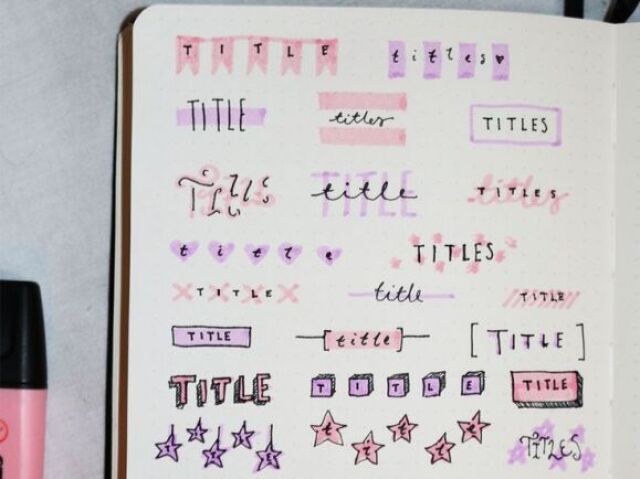 TITLE titles
TITLE titles TITLES
TITLE title TITLES
title TITLES
TITLE title TITLE
TITLE title TITLE
TITLE TITLE TITLE
TITLE title TITLES